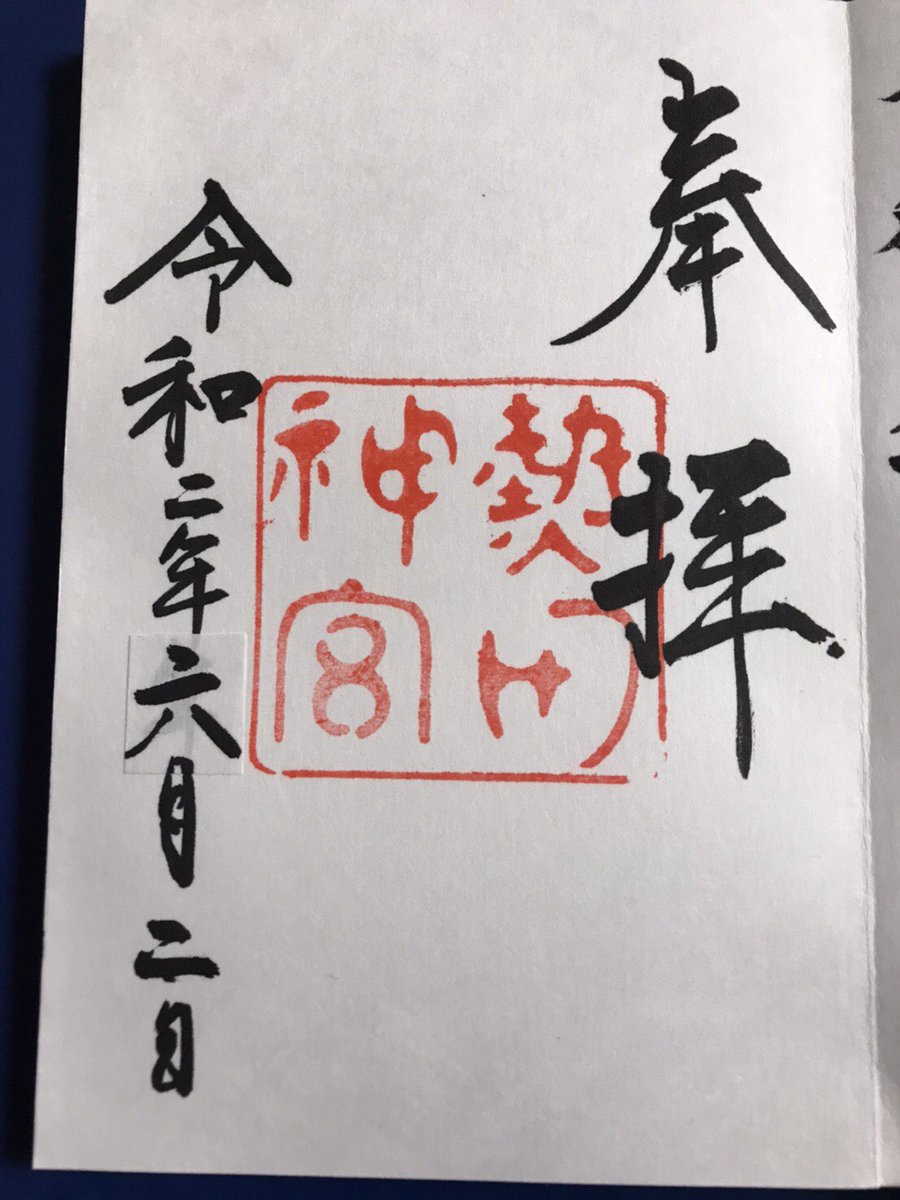 奉拝
熱田
神宮
令和二年六月二日